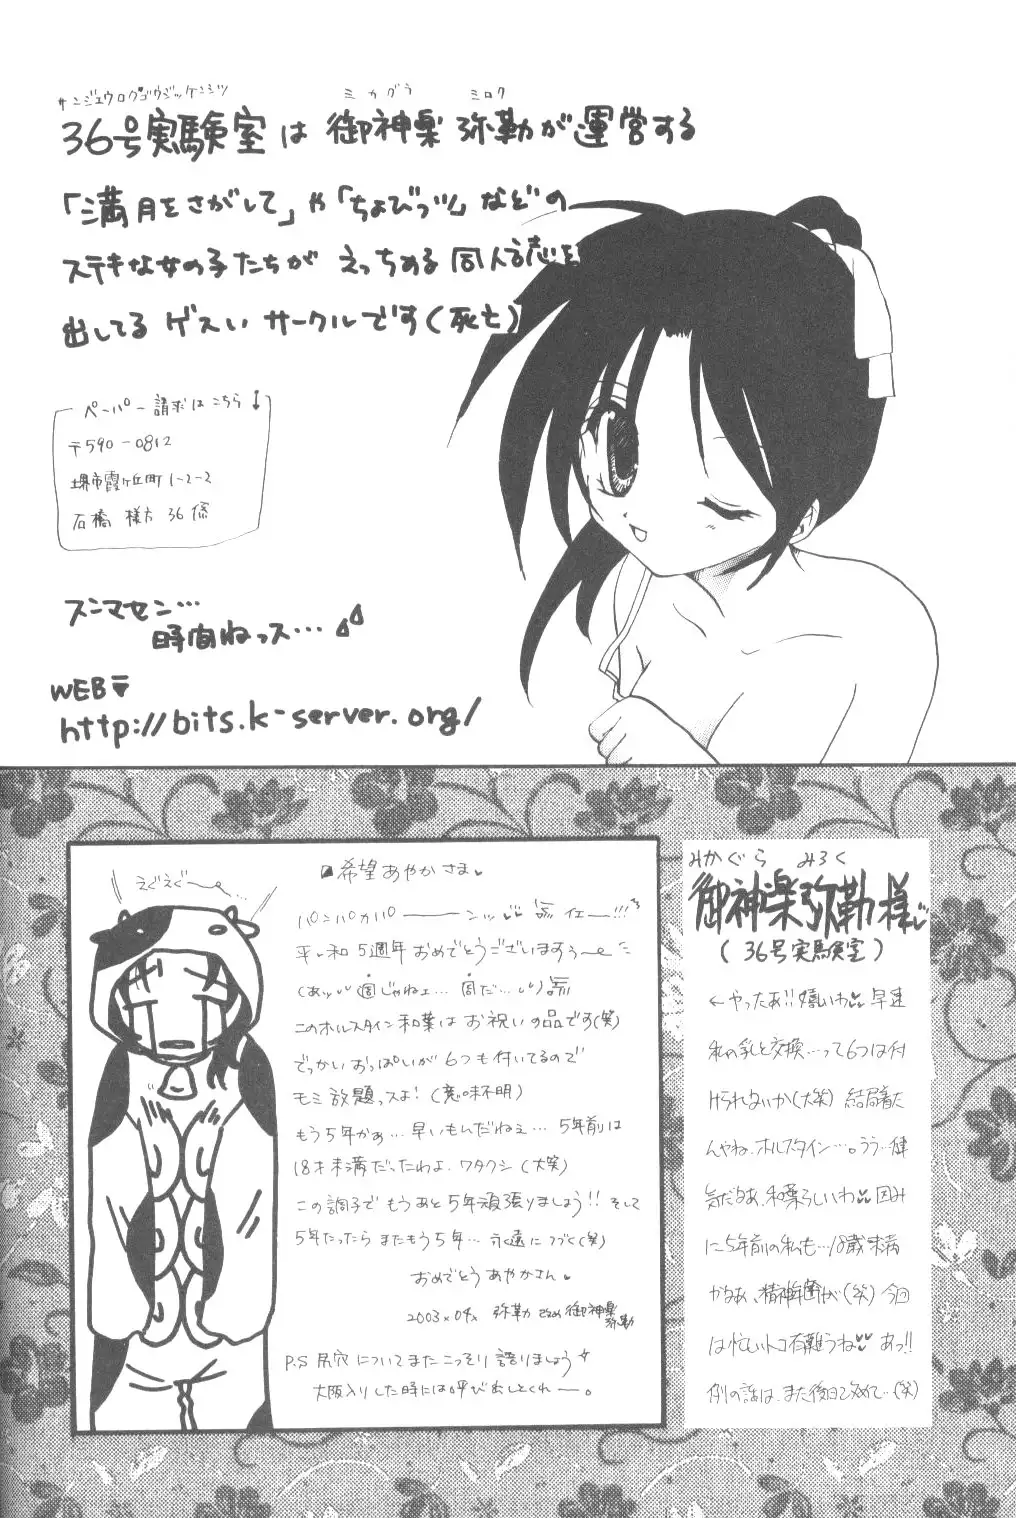 サンジュウロクゴウジッケンシツ
ミカグラ ミロク
36号実験室は 御神楽 弥勒が運営する
「満月をさがして」や「ちょびっツ」などの
ステキな女の子たちが えっちめる 同人誌を
出してる ゲスい サークルです(死亡)
ペーパー請求はこちら↓
〒590-0812
堺市霞ヶ丘町1-2-2
石橋 様方 36係
スンマセン…
時間ねっス…
WEB
http://bits.k-server.org/
えぐえぐ〜
希望あやかさま
パンパカパーーンッ イェー!!!
平和5週年おめでとうございますぅ〜
(あッ 週じゃねェ… 周だ…)
このホルスタイン和葉はお祝いの品です(笑)
でっかいおっぱいが6つも付いてるので
モミ放題っスよ!(意味不明)
もう5年かぁ…早いもんだねぇ…5年前は
18才未満だったわよ、ワタクシ(大笑)
この調子でもうあと5年頑張りましょう!!そして
5年たったらまたもう5年…永遠につづく(笑)
おめでとうあやかさん
2003x04x 弥勒 改め御神楽弥勒
P.S 尻穴についてまたこっそり語りましょう
大阪入りした時には呼び出しとくれー。
みかぐら みろく
御神楽弥勒様
(36号実験室)
←やったぁ!!嬉しいわ 早速
私の乳と交換…って6つは付
けられないか(大笑) 結局着た
んやね、ホルスタイン…。うう…健
気だなあ、和葉らしいわ 因み
に5年前の私も…18歳未満
かなあ、精神年齢が(笑) 今回
は忙しいトコ有難うね あっ!!
例の話は、また後日改めて…(笑)